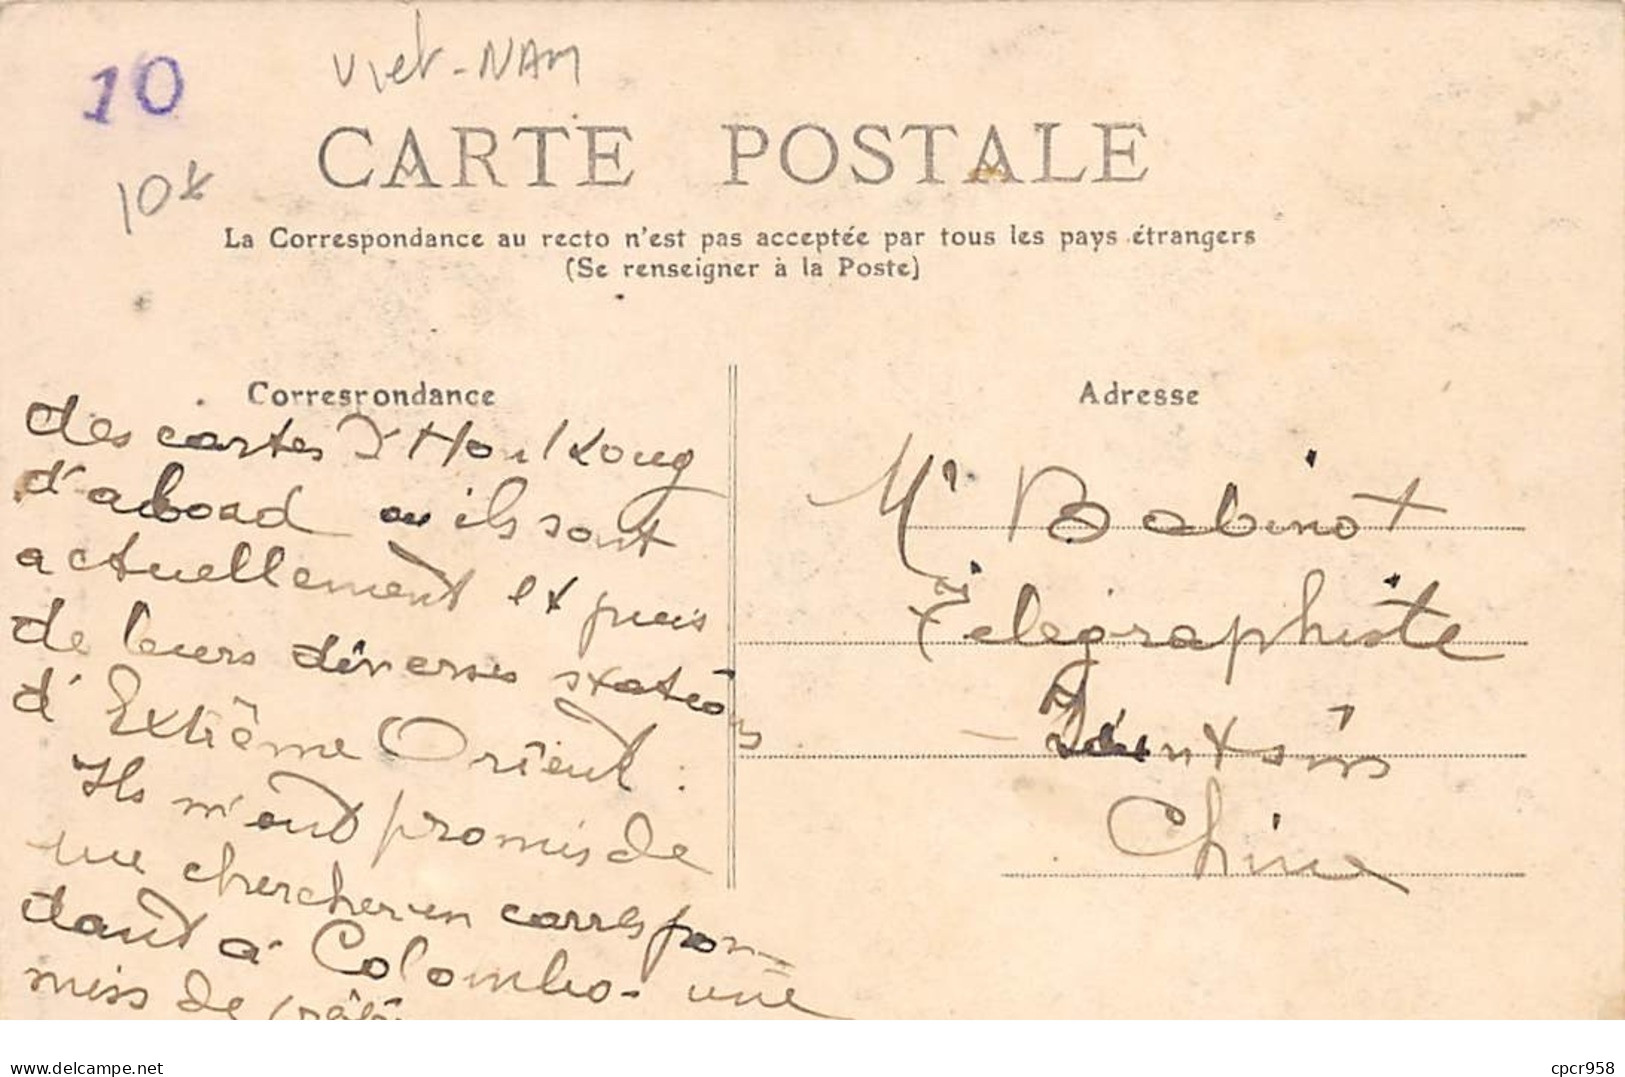 Viet-NAM
10
CARTE POSTALE
10
La Correspondance au recto n'est pas acceptée par tous les pays étrangers
(Se renseigner à la Poste)
Correspondance
des cartes d'Honkong
d'aboad où ils sont
actuellement et puis
de leurs diverses stations
d'Extrême Orient.
Ils m'ont promis de
me chercher un correspon-
dant à Colombo - une
miss de
Adresse
Mr Babinot
Télégraphiste
Tientsin
Chine
www.delcampe.net
cpcr958